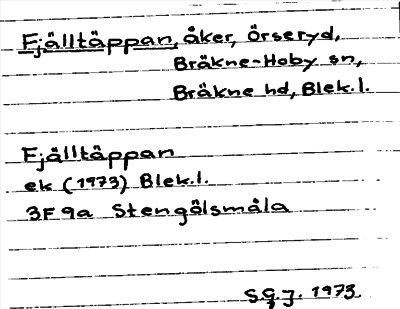 Fjälltäppan, åker, Örseryd,
Bräkne-Hoby sn,
Bräkne hd, Blek.l.
Fjälltäppan
ek (1973) Blek.l.
3F 9a Stengölsmåla
S.G.J. 1973